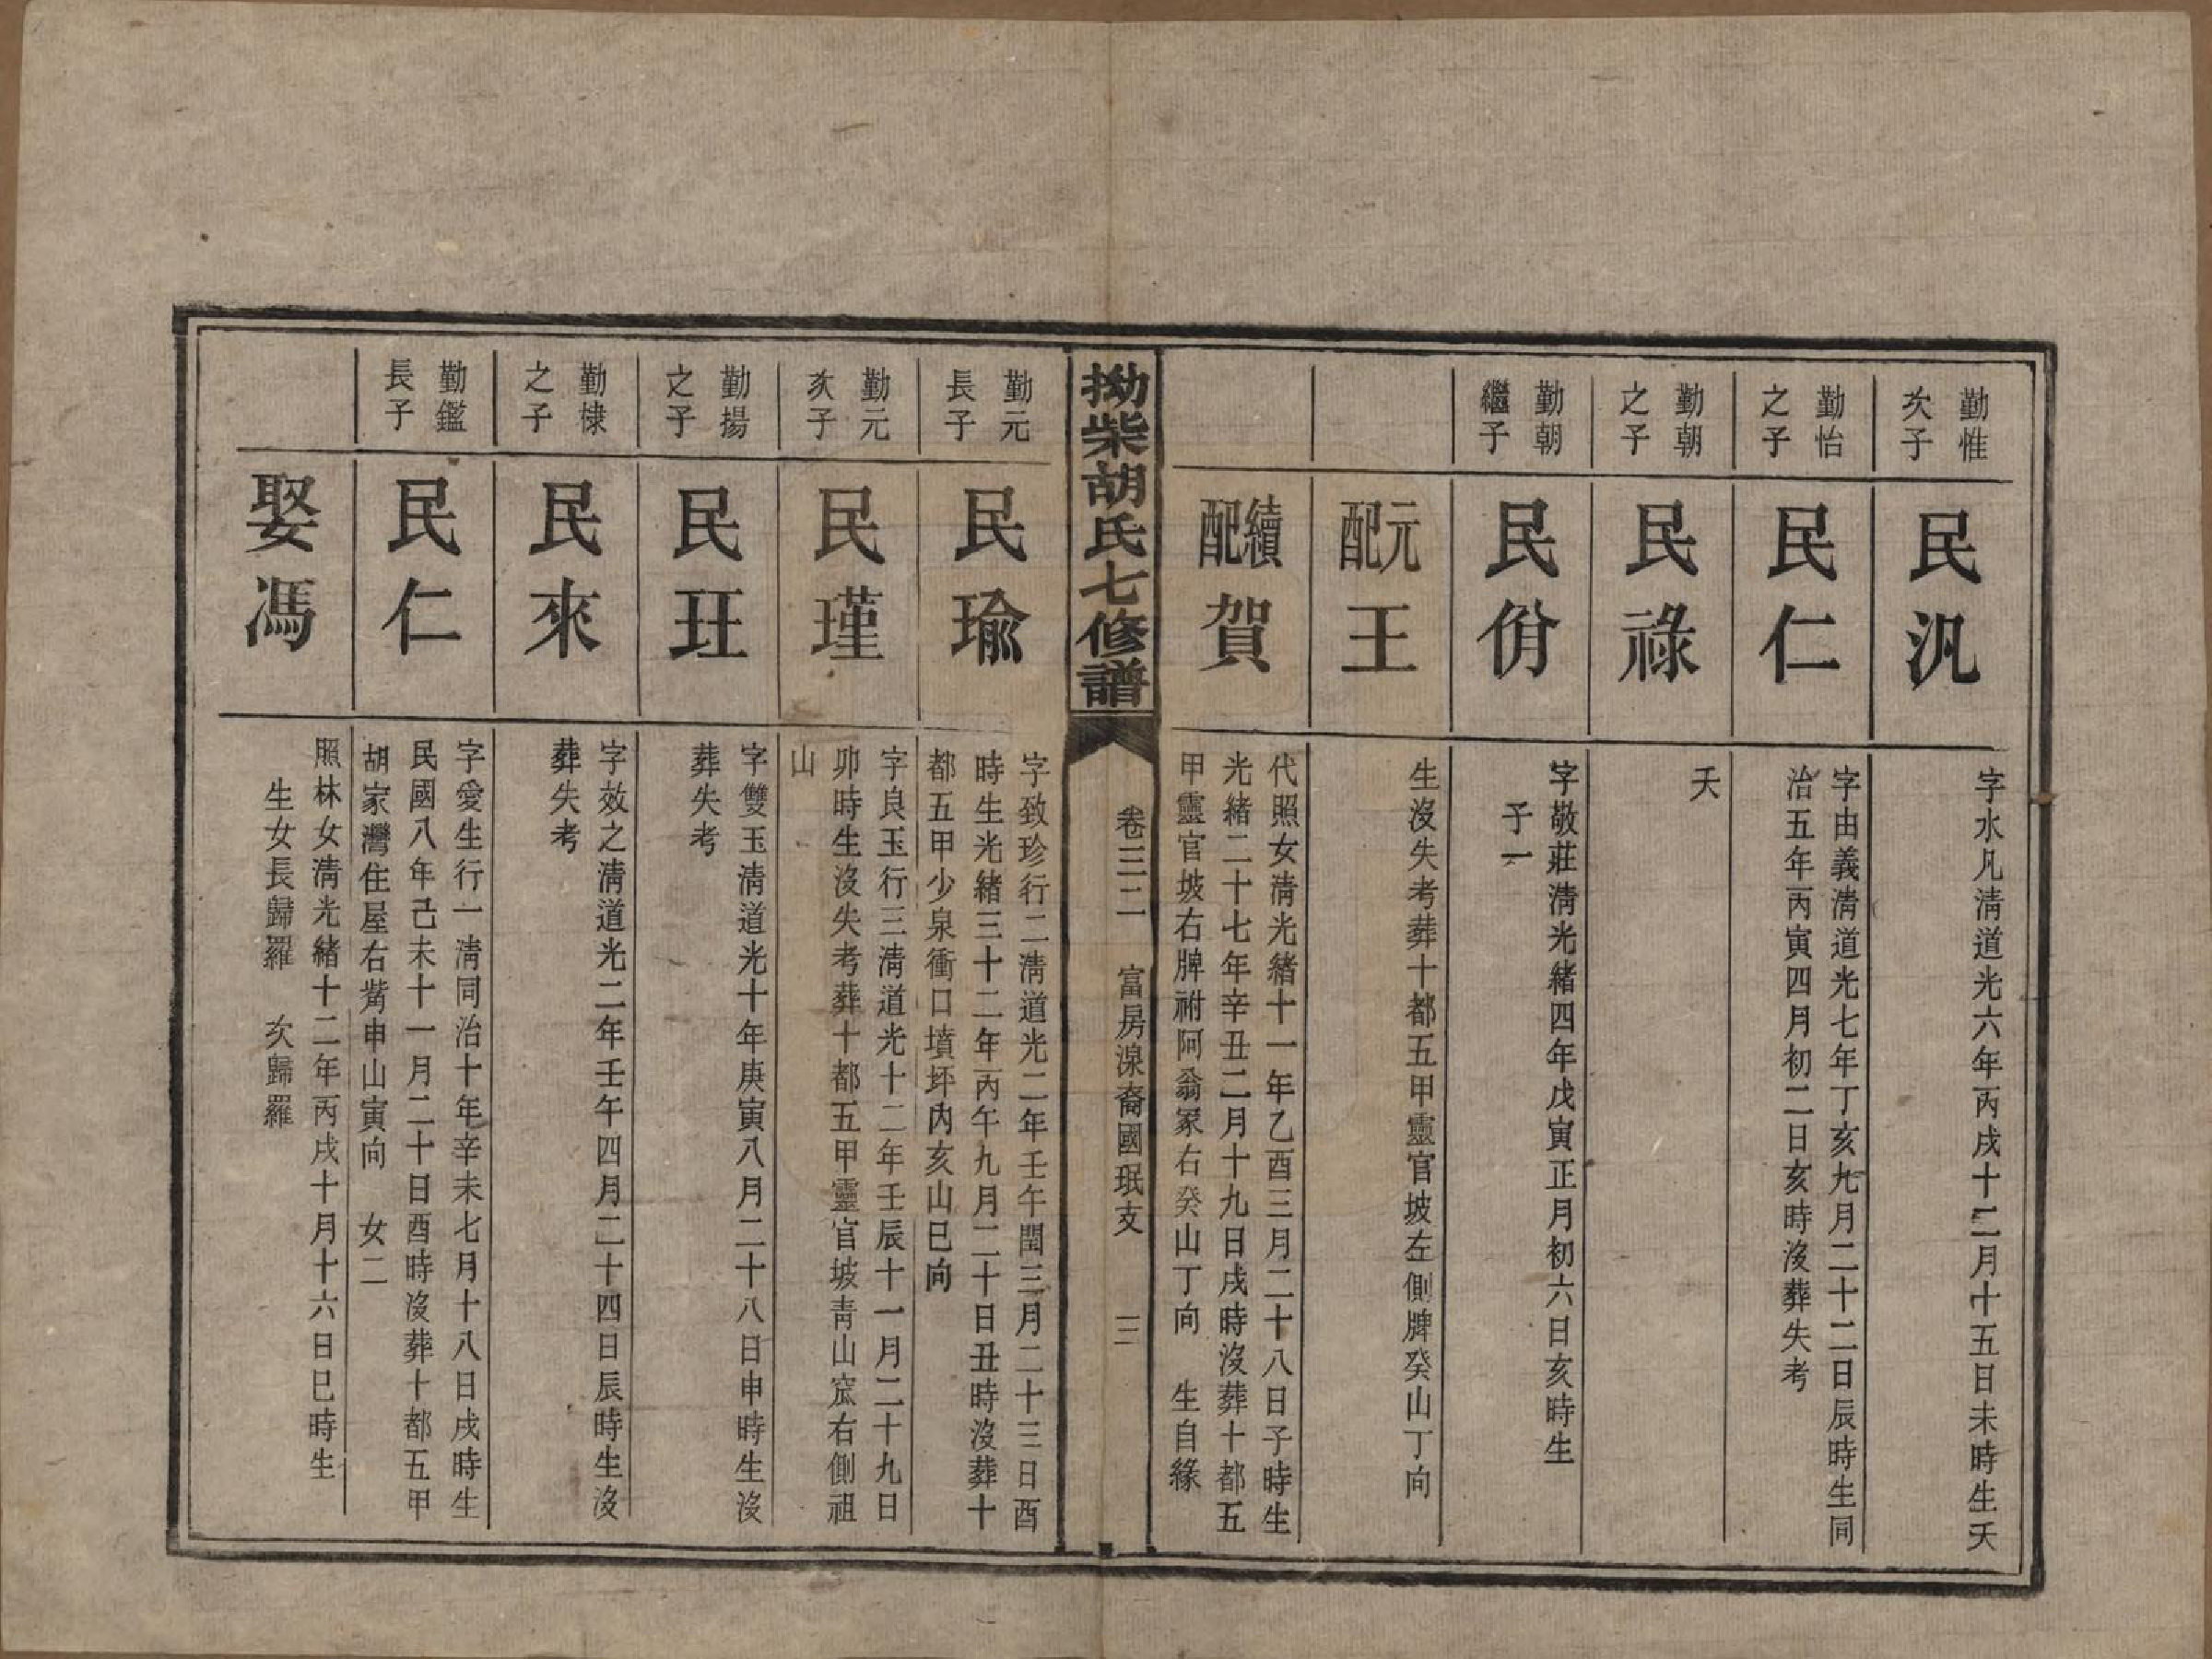 勤惟
次子
民汎
字水凡淸道光六年丙戌十二月十五日未時生夭
勤怡
之子
民仁
字由義淸道光七年丁亥九月二十二日辰時生同
治五年丙寅四月初二日亥時沒葬失考
勤朝
之子
民祿
夭
勤朝
繼子
民佾
字敬莊淸光緒四年戊寅正月初六日亥時生
子一
元配
王
生沒失考葬十都五甲靈官坡左側牌癸山丁向
續配
賀
代照女淸光緒十一年乙酉三月二十八日子時生
光緒二十七年辛丑二月十九日戌時沒葬十都五
甲靈官坡右牌祔阿翁冢右癸山丁向　生自緣
拗柴胡氏七修譜
卷三二　富房湶裔國珉支　三
勤元
長子
民瑜
字致珍行二淸道光二年壬午閏三月二十三日酉
時生光緒三十二年丙午九月二十日丑時沒葬十
都五甲少泉衝口墳坪內亥山巳向
勤元
次子
民瑾
字良玉行三淸道光十二年壬辰十一月二十九日
卯時生沒失考葬十都五甲靈官坡靑山窊右側祖
山
勤揚
之子
民玨
字雙玉淸道光十年庚寅八月二十八日申時生沒
葬失考
勤棣
之子
民來
字效之淸道光二年壬午四月二十四日辰時生沒
葬失考
勤鑑
長子
民仁
字愛生行一淸同治十年辛未七月十八日戌時生
民國八年己未十一月二十日酉時沒葬十都五甲
胡家灣住屋右觜申山寅向　女二
娶馮
照林女淸光緒十二年丙戌十月十六日巳時生
生女長歸羅　次歸羅